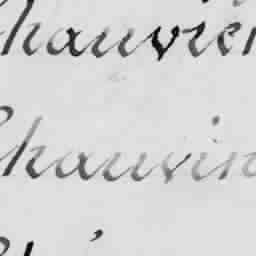 Chauvier
Chauvin